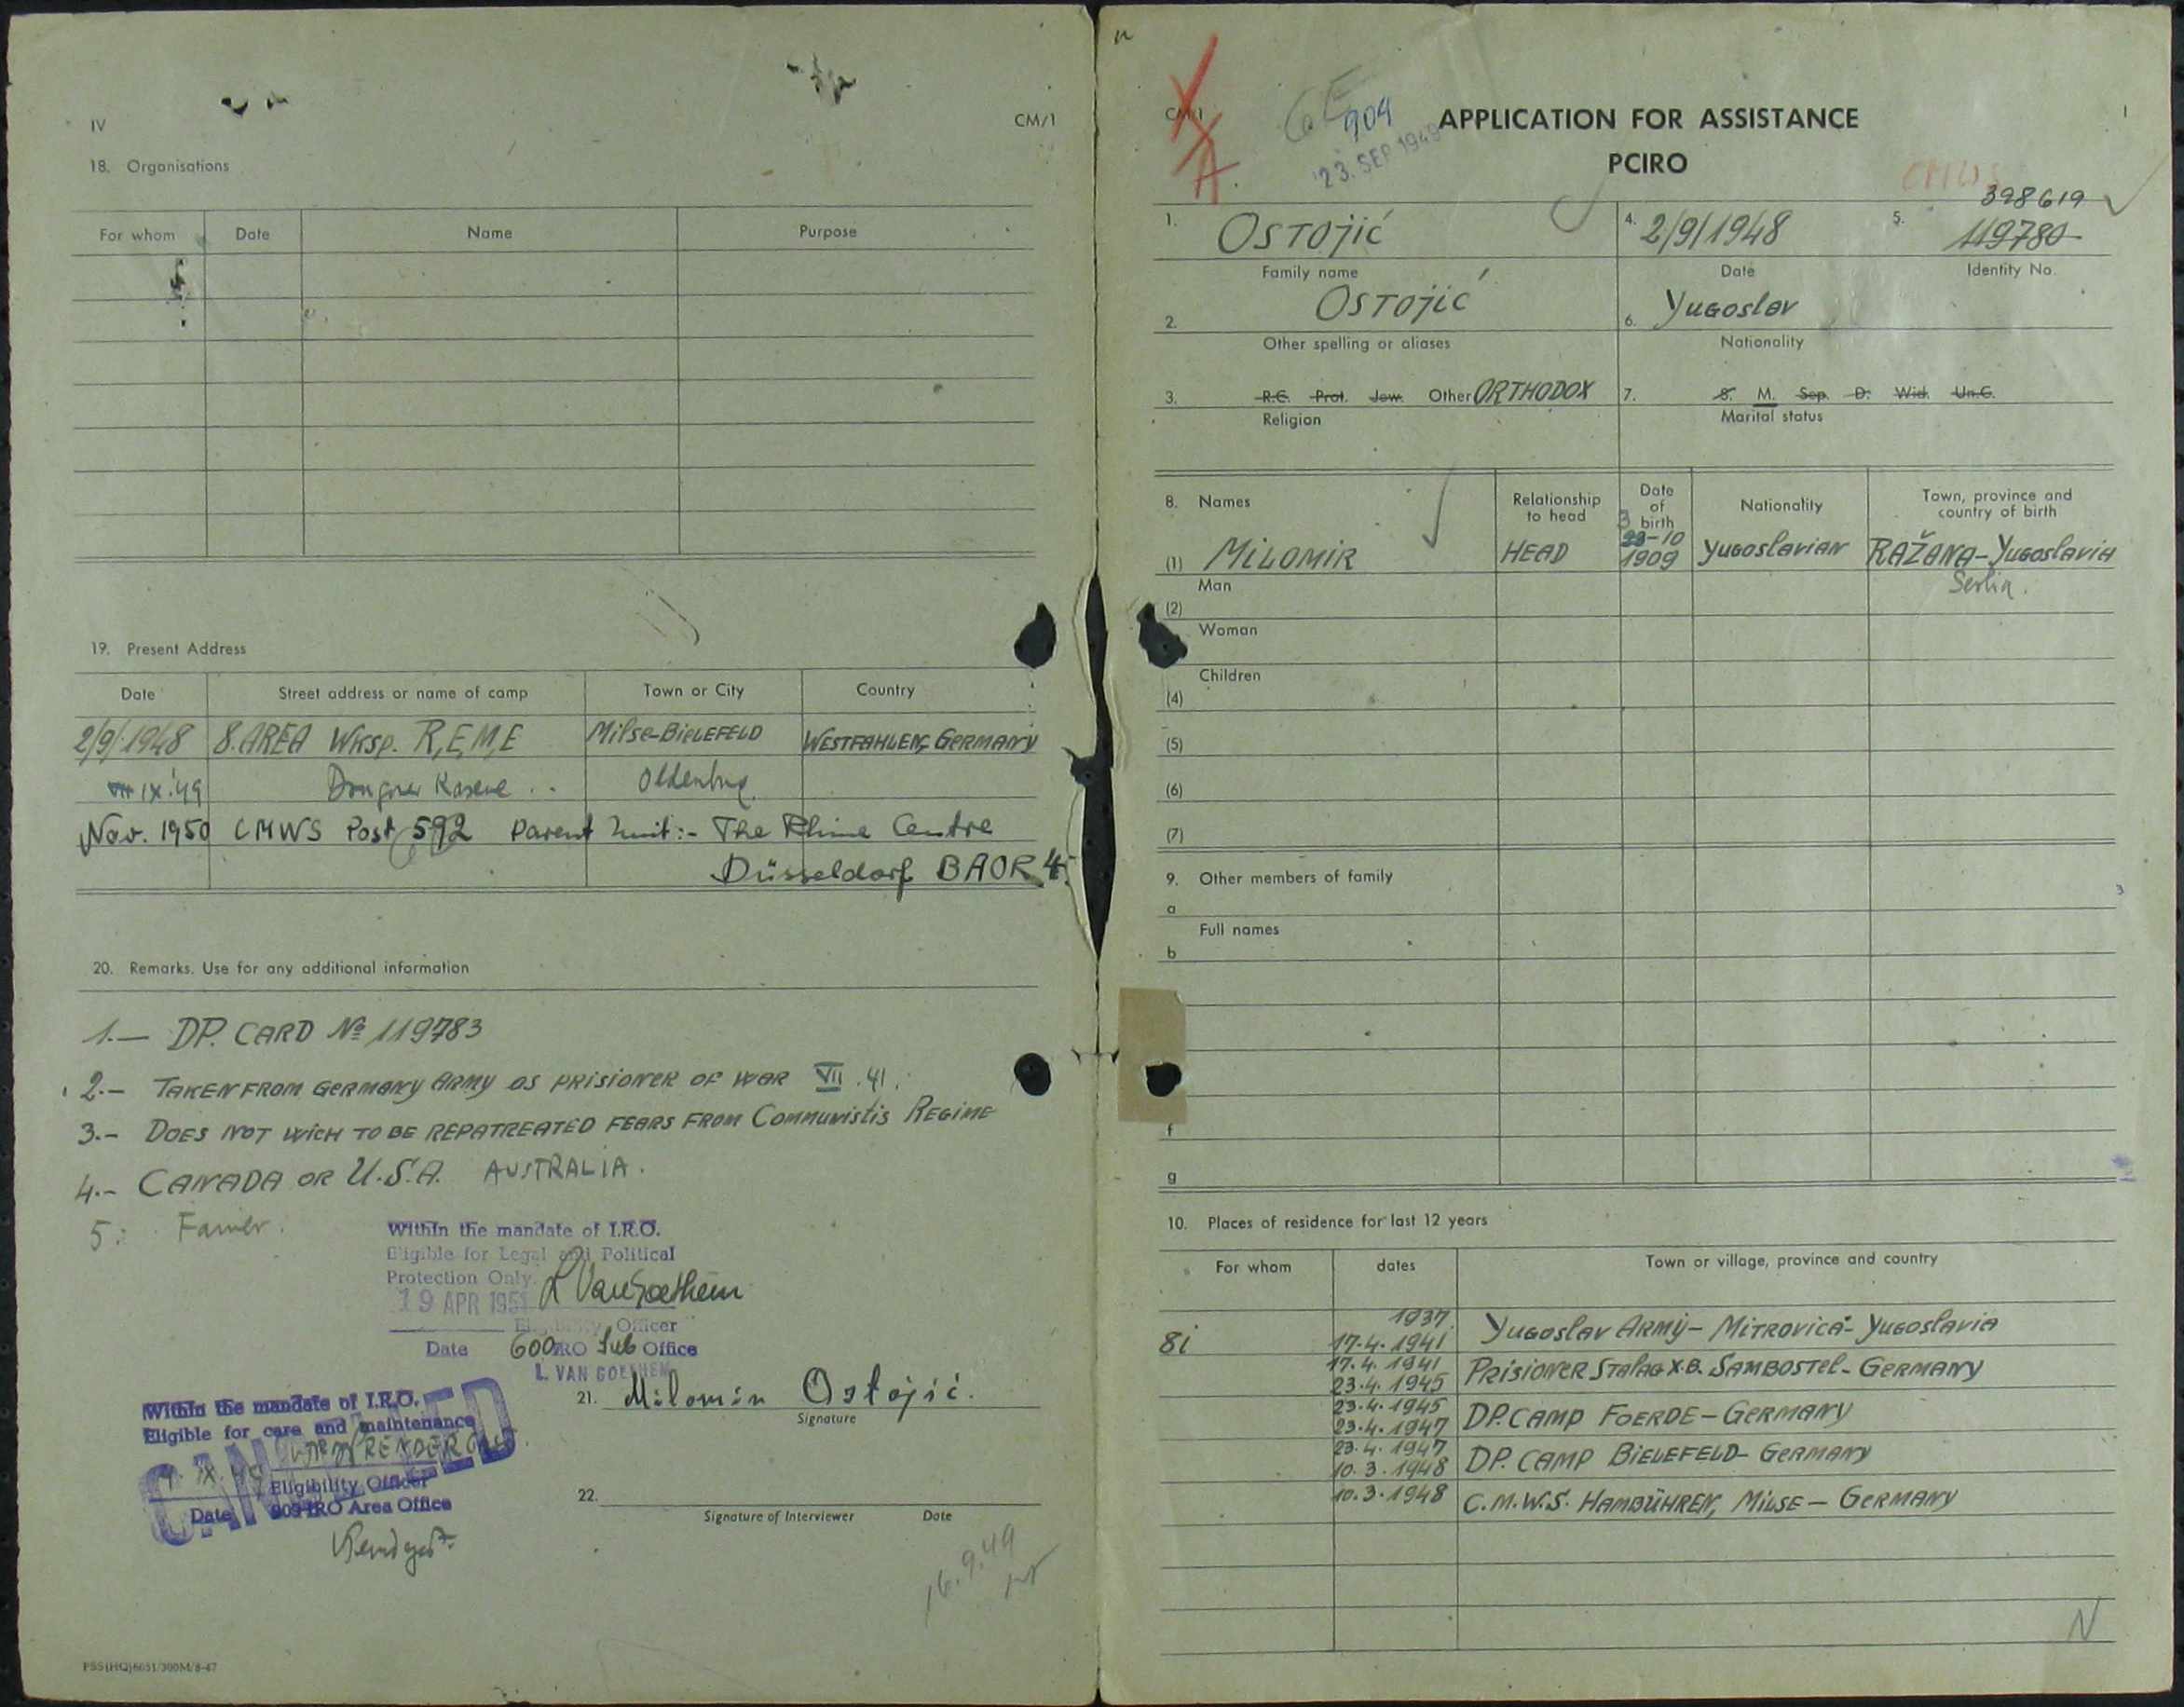 IV
CM/1
18. Organisations
For whom Date Name Purpose
19. Present Address
Date Street address or name of camp Town or City Country
2/9/1948 8.AREA Wksp. R,E,M,E Milse-BIELEFELD WESTFAHLEN, GERMANY
IX.'49 Oldenburg
Nov. 1950 CMWS Post 592 Parent Unit:- The Rhine Centre
Düsseldorf BAOR 4.
20. Remarks. Use for any additional information
1.— DP. CARD № 119783
2.- TAKEN FROM GERMANY ARMY AS PRISIONER OF WAR VII .41.
3.- DOES NOT WICH TO BE REPATREATED FEARS FROM COMMUNISTIS REGIME
4.- CANADA OR U.S.A. AUSTRALIA.
5: Farmer.
Within the mandate of I.R.O.
Eligible for Legal and Political
Protection Only.
19 APR 1951 L VanGoethem
Eligibility Officer
Date 600 IRO Sub Office
L. VAN GOETHEM
21. Milomir Ostojić.
Signature
Within the mandate of I.R.O.
Eligible for care and maintenance
CANCELLED
Eligibility Officer
Date 909 IRO Area Office
22.
Signature of Interviewer Date
16.9.49
PSS(HQ)6051/300M/8-47
CM/1
904
23. SEP 1949
APPLICATION FOR ASSISTANCE
PCIRO
I
CMWS
398619
1. OSTOJIĆ 4. 2/9/1948 5. 119780
Family name Date Identity No.
2. OSTOJIĆ 6. Yugoslav
Other spelling or aliases Nationality
3. R.C. Prot. Jew. Other ORTHODOX 7. S. M. Sep. D. Wid. Un.C.
Religion Marital status
8. Names Relationship to head Date of birth Nationality Town, province and country of birth
(1) MILOMIR HEAD 23-10 1909 Yugoslavian RAŽANA-Yugoslavia
Man Serbia.
(2)
Woman
Children
(4)
(5)
(6)
(7)
9. Other members of family
a
Full names
b
f
g
10. Places of residence for last 12 years
For whom dates Town or village, province and country
8i 1937. 17.4.1941 Yugoslav Army - MITROVICA - Yugoslavia
17.4.1941 23.4.1945 PRISIONER STALAG X.B. SAMBOSTEL - GERMANY
23.4.1945 23.4.1947 DP.CAMP FOERDE - GERMANY
23.4.1947 10.3.1948 DP. CAMP BIELEFELD - GERMANY
10.3.1948 C.M.W.S. HAMBÜHREN, MILSE - GERMANY
N